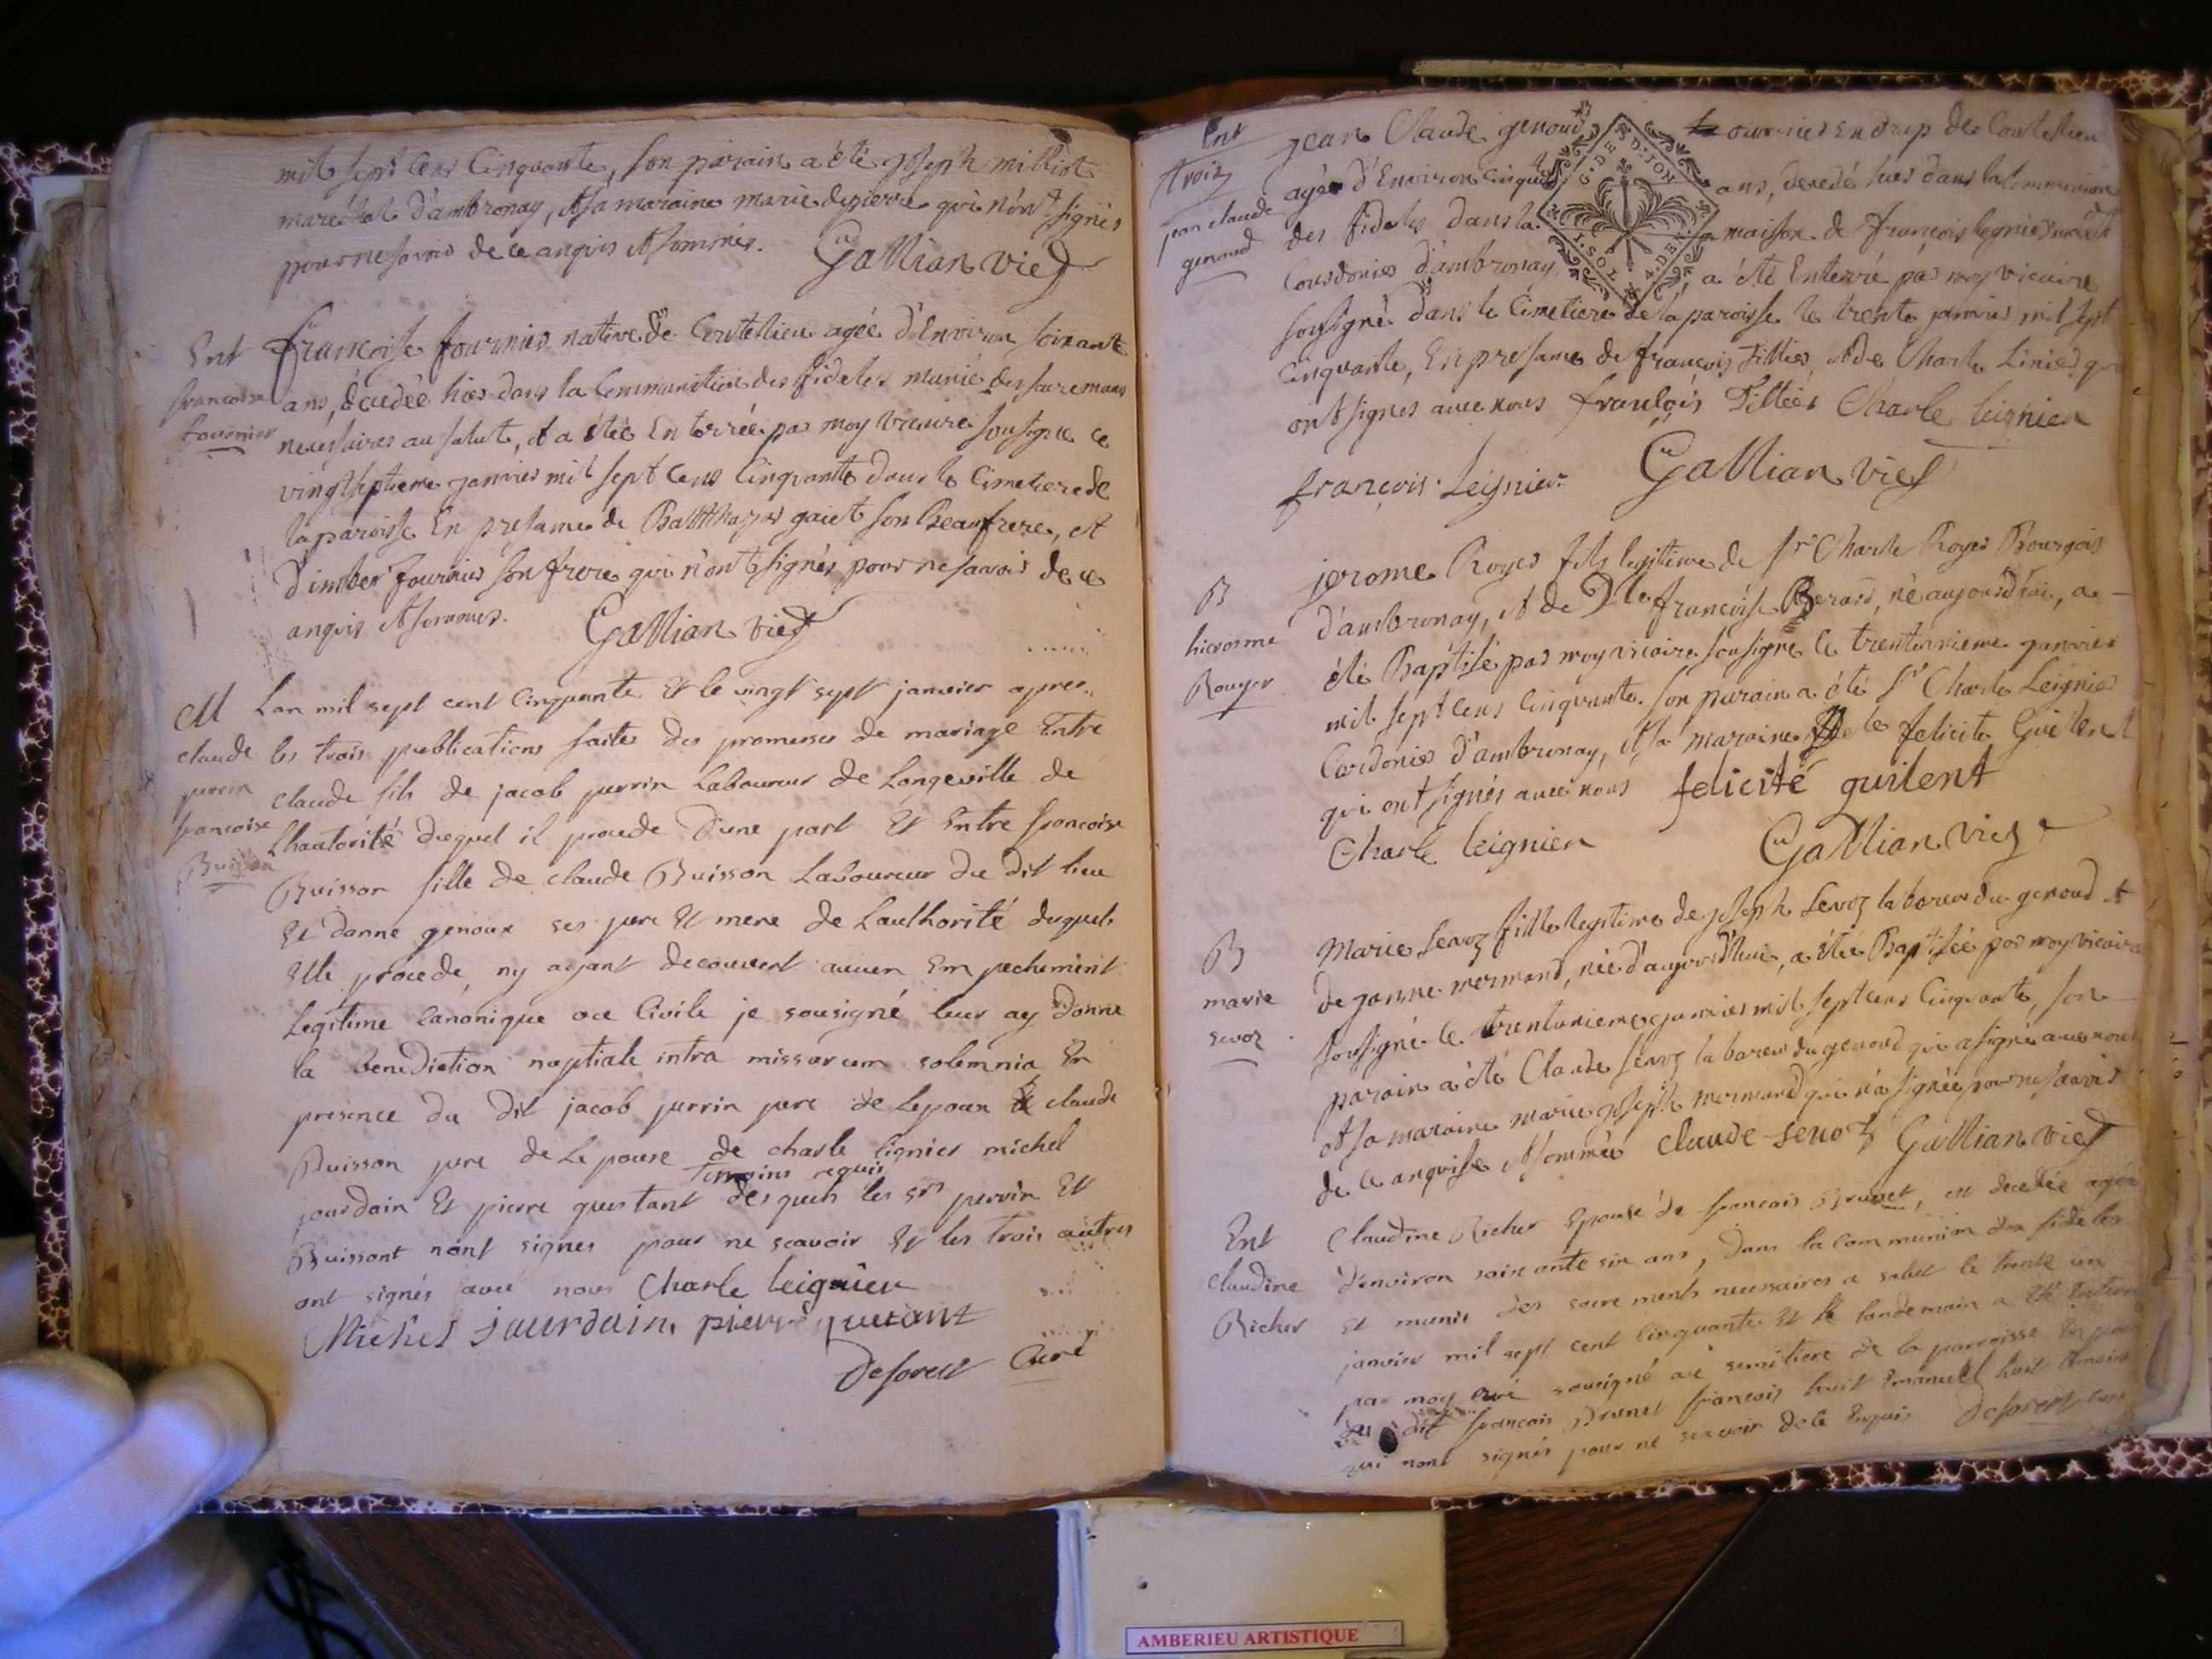 mil sept cens Cinquante, son parain a été joseph millist
maréchal d'ambronay, et sa maraine marie depierre qui n'ont signés
pour ne savoir de ce anquis et sommés. Gallian vic
Ent
francoise
fournier
francoise fournier native de Coutelieu agée d'Environ soixante
ans, décédée hier dans la Communition des fideles munie des sacremans
necessaires au salut, et a étée Enterrée par moy vicaire sousigné le
vingt septieme janvier mil sept cens Cinquante dans le Cimetiere de
la paroisse En presame de Balthazar gaiet son Beaufrere, et
d'imber fournier son frere qui n'ont signés pour ne savoir de ce
anquis et sommés. Gallian vic
M
claude
perrin
francoise
Buisson
Lan mil sept cent Cinquante Et le vingt sept janvier apres
les trois publications faites des promesses de mariage Entre
claude fils de jacob perrin Laboureur de Longeville de
Lhautorité duquel il procede d'une part Et Entre francoise
Buisson fille de claude Buisson Laboureur du dit lieu
Et danne genoux ses pere Et mere de Laulhorité desquels
Elle procede, ny ayant decouvert aucun Empechement
Legitime Canonique ou Civile je sousigné leur ay donne
la benediction nuptiale intra missarum solemnia En
presence du dit jacob perrin pere de Lepoux de claude
Buisson pere de Lepouse de charle lignier michel
jourdain Et pierre questant temoins requis desquels les srs perrin Et
Buissont nont signes pour ne scavoir Et les trois autres
ont signés avec nous Charle leignier
Michel jaurdain pierre
Deforest Curé
Ent
trois
jean claude
genoud
jean Claude genoud fournier En drap de Coutelieu
agée d'Environ Cinquante ans, decedé hier dans la Communion
des fideles dans la maison de francois legnier
Cordonier d'ambronay, a été Enterré par moy vicaire
sousigné dans le Cimetiere de la paroisse le trente janvier mil sept
Cinquante, En presame de francois Tillier, et de Charle Linier qui
ont signes avec nous francois Tillier Charle leignier
francois Leignier Gallian vic
G. DE DIJON
1. SOL 4. DEN.
B
hierosme
Rouyer
jerome Royer fils legitime de Sr Charle Royer Bourgois
d'ambronay, et de Dlle francoise Berard, né aujourd'hui, a
été Baptisé par moy vicaire sousigné le trentunieme janvier
mil sept cens Cinquante. son parain a été Sr Charle Leignier
Cardonier d'ambronay, et sa maraine Dlle felicite Guilent
qui ont signés avec nous felicité guilent
Charle leignier Gallian vic
B
marie
sevoz
Marie Sevoz fille legitime de joseph Sevoz laboreur du genoud et
de janne mermand, née d'aujourd'hui, a étée Baptisée par moy vicaire
sousigné le trentunieme janvier mil sept cens Cinquante, son
parain a été Claude Sevoz laboreur du genoud qui a signé avec nous
et sa maraine marie joseph mermand qui n'a signée pour ne savoir
de ce anquise et sommée claude sevoz Gallian vic
Ent
claudine
Richer
Claudine Richer Epouse de francois Brunet, est decedée agée
d'environ soixante six ans, dans la communion des fideles
Et munie des sacrements necessaires a salut le trente un
janvier mil sept cent Cinquante Et le landemain a Eté Enterré
par moy curé sousigné au semitiere de la parroisse En
du dit francois Brunet francois huit Emanuel huit
qui nont signés pour ne scavoir de ce Enquis Deforest
AMBERIEU ARTISTIQUE